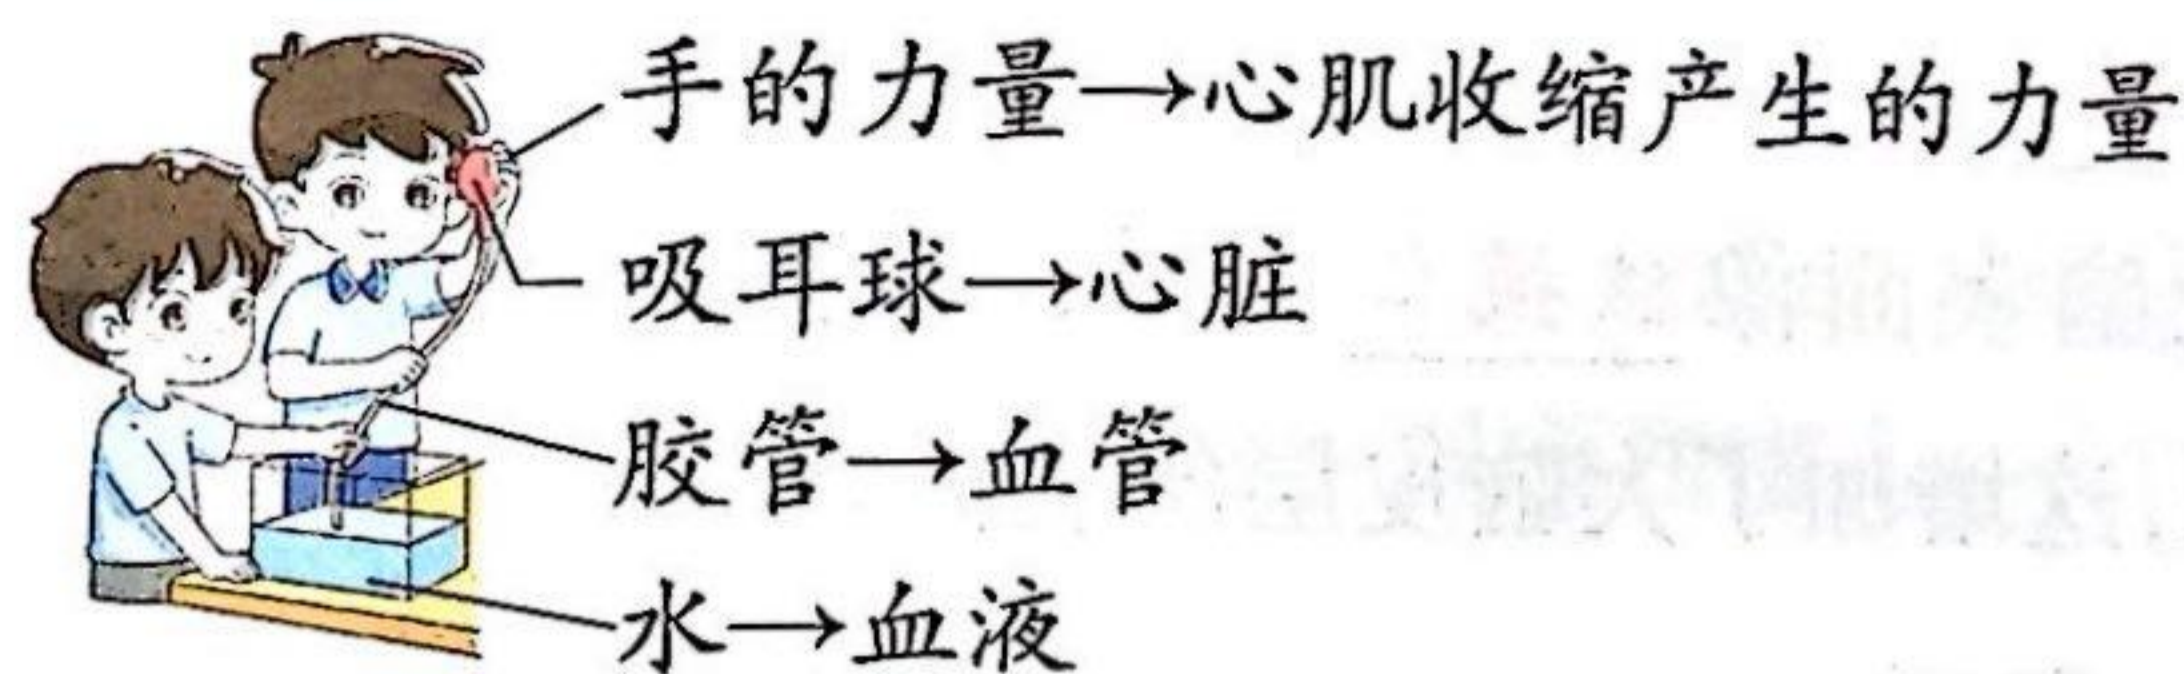 手的力量→心肌收缩产生的力量
吸耳球→心脏
胶管→血管
水→血液